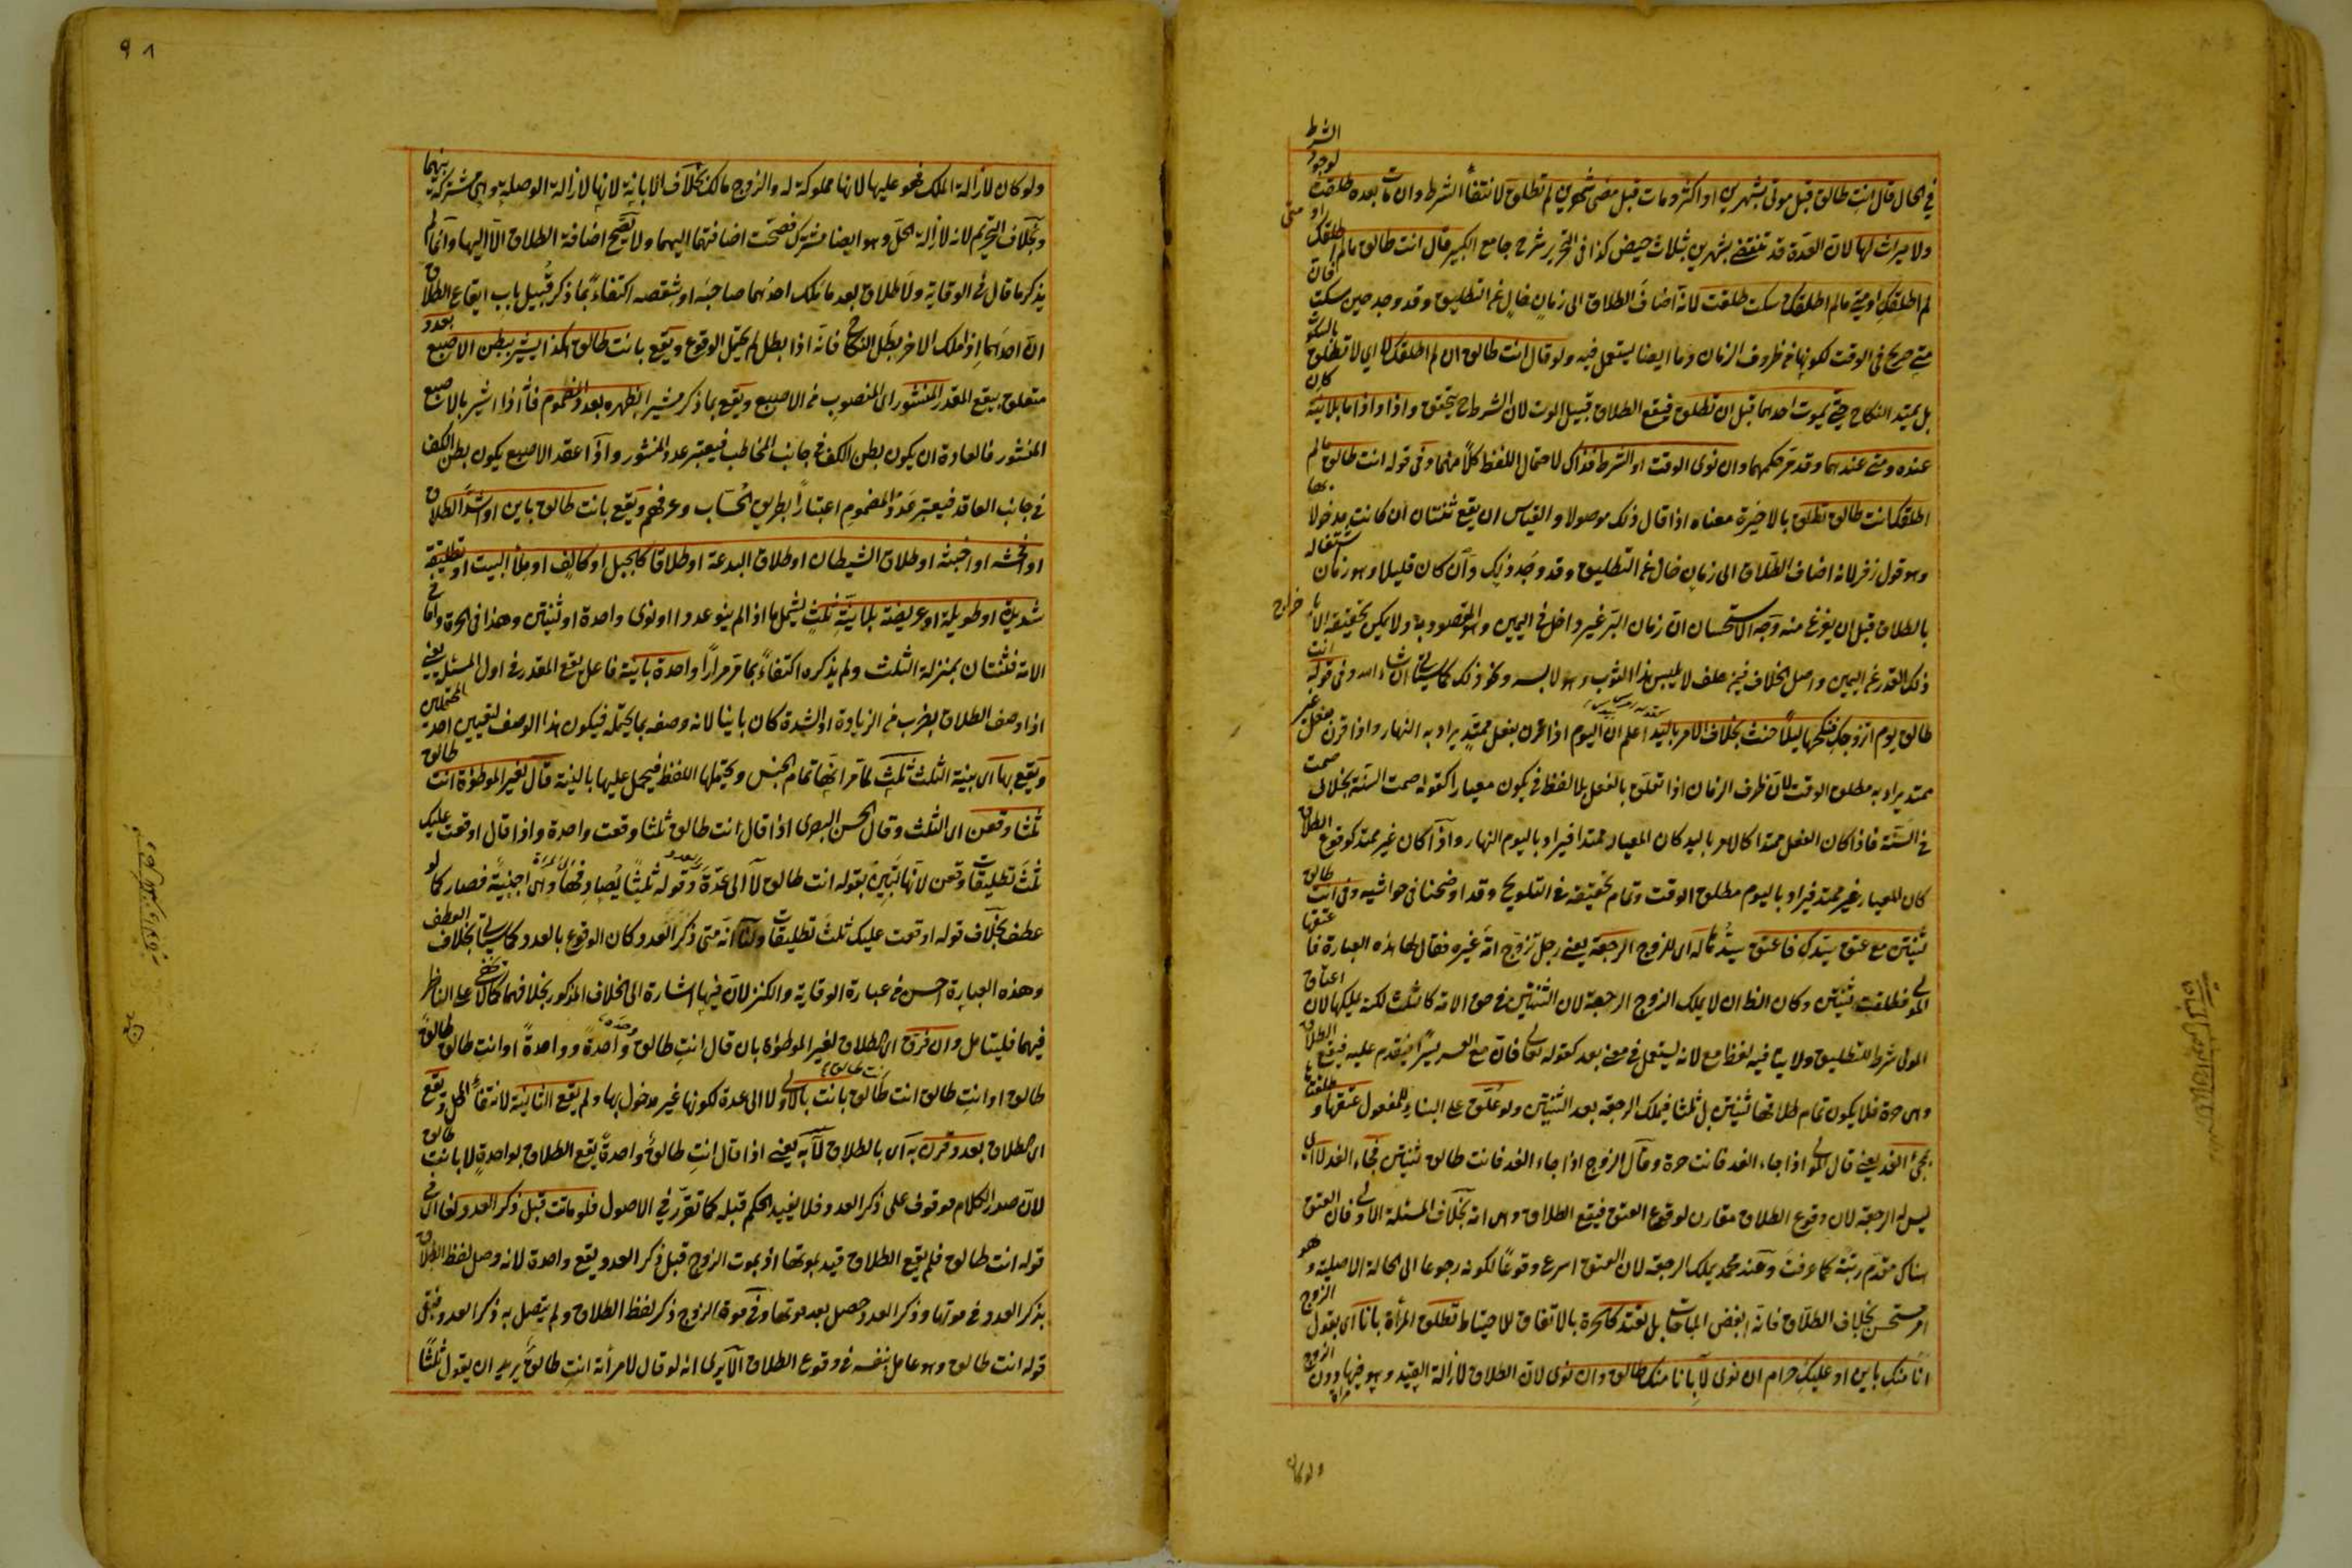 في الحال قال انت طالق قبل موتي بشهرين او اكثر ومات قبل مضي شهرين لم تطلق لانتفاء الشرط وان مات بعده طلقت لوجود الشرط
ولا ميراث لها لان العدة قد تنقضي بشهرين بثلاث حيض كذا في التحرير شرح جامع الكبير قال انت طالق مالم اطلقك او متى
لم اطلقك او متى مالم اطلقك وسكت طلقت لانه اضاف الطلاق الى زمان خال عن التطليق وقد وجد حين سكت فان
متى صريح في الوقت لكونها من ظروف الزمان وما ايضا يستعمل فيه ولو قال انت طالق ان لم اطلقك لا اي لا تطلق بالسكوت
بل يمتد النكاح حتى يموت احدهما قبل ان تطلق فيقع الطلاق قبيل الموت لان الشرط ح يتحقق واذا واذا ما بلا نية كان
عنده ومتى عندهما وقد مر حكمهما وان نوى الوقت او الشرط فذاك لاحتمال اللفظ كلا منهما وفي قوله انت طالق مالم
اطلقك انت طالق تطلق بالاخيرة معناه اذا قال ذلك موصولا والقياس ان يقع ثنتان ان كانت مدخولا بها
وهو قول زفر لانه اضاف الطلاق الى زمان خال عن التطليق وقد وجد ذلك وان كان قليلا وهو زمان اشتغاله
بالطلاق قبل ان يفرغ منه وجه الاستحسان ان زمان البر غير داخل في اليمين وهو المقصود به ولا يمكن تحقيقه الا باخراج
ذلك القدر عن اليمين واصل الخلاف فيمن حلف لا يلبس هذا الثوب وهو لابسه ونحو ذلك كما سيأتي ان شاء الله وفي قوله انت
طالق يوم اتزوجك فنكحها ليلا حنث بخلاف الامر باليد اعلم ان اليوم اذا قرن بفعل ممتد يراد به النهار واذا قرن بفعل غير
ممتد يراد به مطلق الوقت لان ظرف الزمان اذا تعلق بالفعل بلا لفظ في يكون معيارا كقوله صمت السنة بخلاف صمت
في السنة فاذا كان الفعل ممتدا كالامر باليد كان المعيار ممتدا فيراد باليوم النهار واذا كان غير ممتد كوقوع الطلاق
كان المعيار غير ممتد فيراد باليوم مطلق الوقت وتمام تحقيقه في التلويح وقد اوضحنا في حواشيه وفي انت طالق
ثنتين مع عتق سيدك فاعتق سيد ها له اى للزوج الرجعة يعني رجل تزوج امة غيره فقال لها هذه العبارة فاعتقها
المولى فطلقت ثنتين وكان الظ ان لا يملك الزوج الرجعة لان الثنتين في حق الامة كالثلث لكنه يملكها لان اعتاق
المولى شرط للتطليق ولا ينافيه لفظ مع لانه يستعمل في معنى بعد كقوله تعالى فان مع العسر يسرا فيتقدم عليه فيقع الطلاق
وهى حرة فلا يكون تمام طلاقها ثنتين بل ثلثا فيملك الرجعة بعد الثنتين ولو علق على البناء للمفعول عتقها وطلقتاها
بمجيء الغد يعني قال المولى اذا جاء الغد فانت حرة وقال الزوج اذا جاء الغد فانت طالق ثنتين فجاء الغد لا اى
ليس له الرجعة لان وقوع الطلاق مقارن لوقوع العتق فيقع الطلاق وهى امة بخلاف المسئلة الاولى فان العتق
هناك مقدم رتبة كما عرفت وعند محمد يملك الرجعة لان العتق اسرع وقوعا لكونه رجوعا الى الحالة الاصلية وهو
امر مستحسن بخلاف الطلاق فانه ابغض المباحات بل تعتد كالحرة بالاتفاق للاحتياط تطلق المرأة بانا اى بقول الزوج
انا منك باين او عليك حرام ان نوى لا بانا منك طالق وان نوى لان الطلاق لازالة القيد وهو فيها دون الزوج
ولو كان
٩١
ولو كان لازالة الملك فهو عليها لانها مملوكة له والزوج مالك بخلاف الابانة لانها لازالة الوصلة وهى مشتركة بينهما
وبخلاف التحريم لانه لازالة الحل وهو ايضا مشترك فصحت اضافتهما اليهما ولا تصح اضافة الطلاق الا اليها وانما لم
يذكر ما قال في الوقاية ولا طلاق بعد ما ملك احدهما صاحبه او شقصه اكتفاء بما ذكر قبيل باب ايقاع الطلاق
ان احدهما اذا ملك الاخر بطل النكاح فانه اذا بطل لم يحتمل الوقوع ويقع بانت طالق هكذا يشير ببطن الاصبع بعدد
متعلق بيقع المقدر المنشور اى المنصوب من الاصبع ويقع بما ذكر مشيرا بظهره بعدد المضموم فانه اذا اشير بالاصبع
المنشور فالعادة ان يكون بطن الكف في جانب المخاطب فيعتبر عدد المنشور واذا عقد الاصبع يكون بطن الكف
في جانب العاقد فيعتبر عدد المضموم اعتبارا بطريق الحساب وعرفهم ويقع بانت طالق باين او اشد الطلاق
او افحشه او اخبثه او طلاق الشيطان او طلاق البدعة او طلاقا كالجبل او كالف او ملأ البيت او تطليقة
شديدة او طويلة او عريضة بلا نية ثلث يشمل ما اذا لم ينو عددا او نوى واحدة او ثنتين وهذا في الحرة واما في
الامة فثنتان بمنزلة الثلث ولم يذكره اكتفاء بما مر مرارا واحدة باينة فاعل يقع المقدر في اول المسئلة يعني
اذا وصف الطلاق بضرب من الزيادة او الشدة كان باينا لانه وصفه بما يحتمله فيكون هذا الوصف لتعيين احد المحتملين
ويقع بها اى بنية الثلث ثلث لما مر انها تمام الجنس ويحتملها اللفظ فيحمل عليها بالنية قال لغير الموطؤة انت طالق
ثلثا وقعن اى الثلث وقال الحسن البصرى اذا قال انت طالق ثلثا وقعت واحدة واذا قال اوقعت عليك
ثلث تطليقات وقعن لانها تبين بقوله انت طالق لا الى عدة وقوله ثلثا يصادفها وهى اجنبية فصار كما لو
عطف بخلاف قوله اوقعت عليك ثلث تطليقات ولنا انه متى ذكر العدد كان الوقوع بالعدد كما سيأتي بخلاف العطف
وهذه العبارة احسن من عبارة الوقاية والكنز لان فيها اشارة الى الخلاف المذكور بخلافهما كما لا يخفى على الناظر
فيهما فليتأمل وان فرق اى الطلاق لغير الموطؤة بان قال انت طالق واحدة وواحدة او انت طالق طالق
طالق او انت طالق انت طالق بانت بالاولى لا الى عدة لكونها غير مدخول بها ولم يقع الثانية لانتفاء المحل ويقع
اى الطلاق بعدد قرن به اى بالطلاق لا به يعني اذا قال انت طالق واحدة يقع الطلاق بواحدة لا بانت طالق
لان صدر الكلام موقوف على ذكر العدد فلا يفيد الحكم قبله كما تقرر في الاصول فلو ماتت قبل ذكر العدد لغا اى
قوله انت طالق فلم يقع الطلاق قيد بموتها اذ بموت الزوج قبل ذكر العدد يقع واحدة لانه وصل لفظ الطلاق
بذكر العدد في موتها وذكر العدد حصل بعد موتها وفي موت الزوج ذكر لفظ الطلاق ولم يتصل به ذكر العدد فبقى
قوله انت طالق وهو عامل بنفسه في وقوع الطلاق الا يرى انه لو قال لامرأته انت طالق يريد ان يقول ثلثا